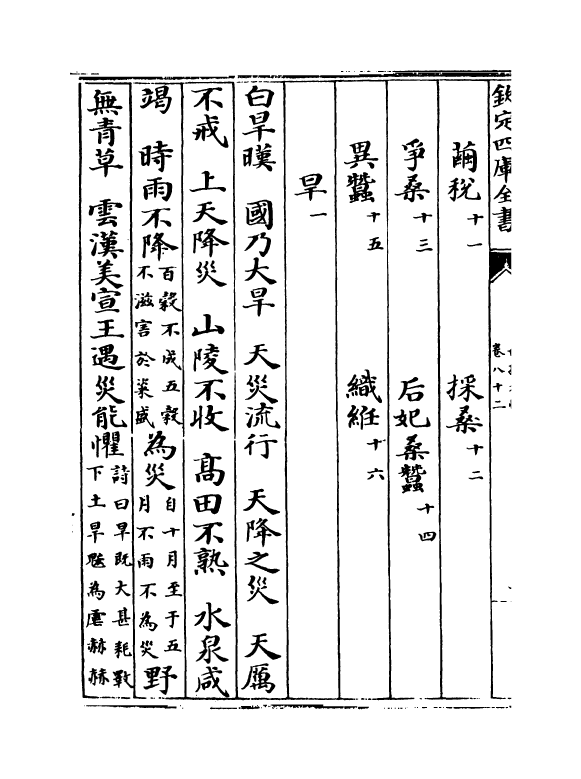 欽定四庫全書
卷八十二
繭稅十一 採桑十二
爭桑十三 后妃桑蠶十四
異蠶十五 織維十六
旱一
白旱暵 國乃大旱 天災流行 天降之災 天厲
不戒 上天降災 山陵不收 髙田不熟 水泉咸
竭 時雨不降百穀不成五穀不滋害於粢盛為災自十月至于五月不雨不為災野
無青草 雲漢美宣王遇災能懼詩曰旱既大甚耗斁下土旱魃為虐赫赫